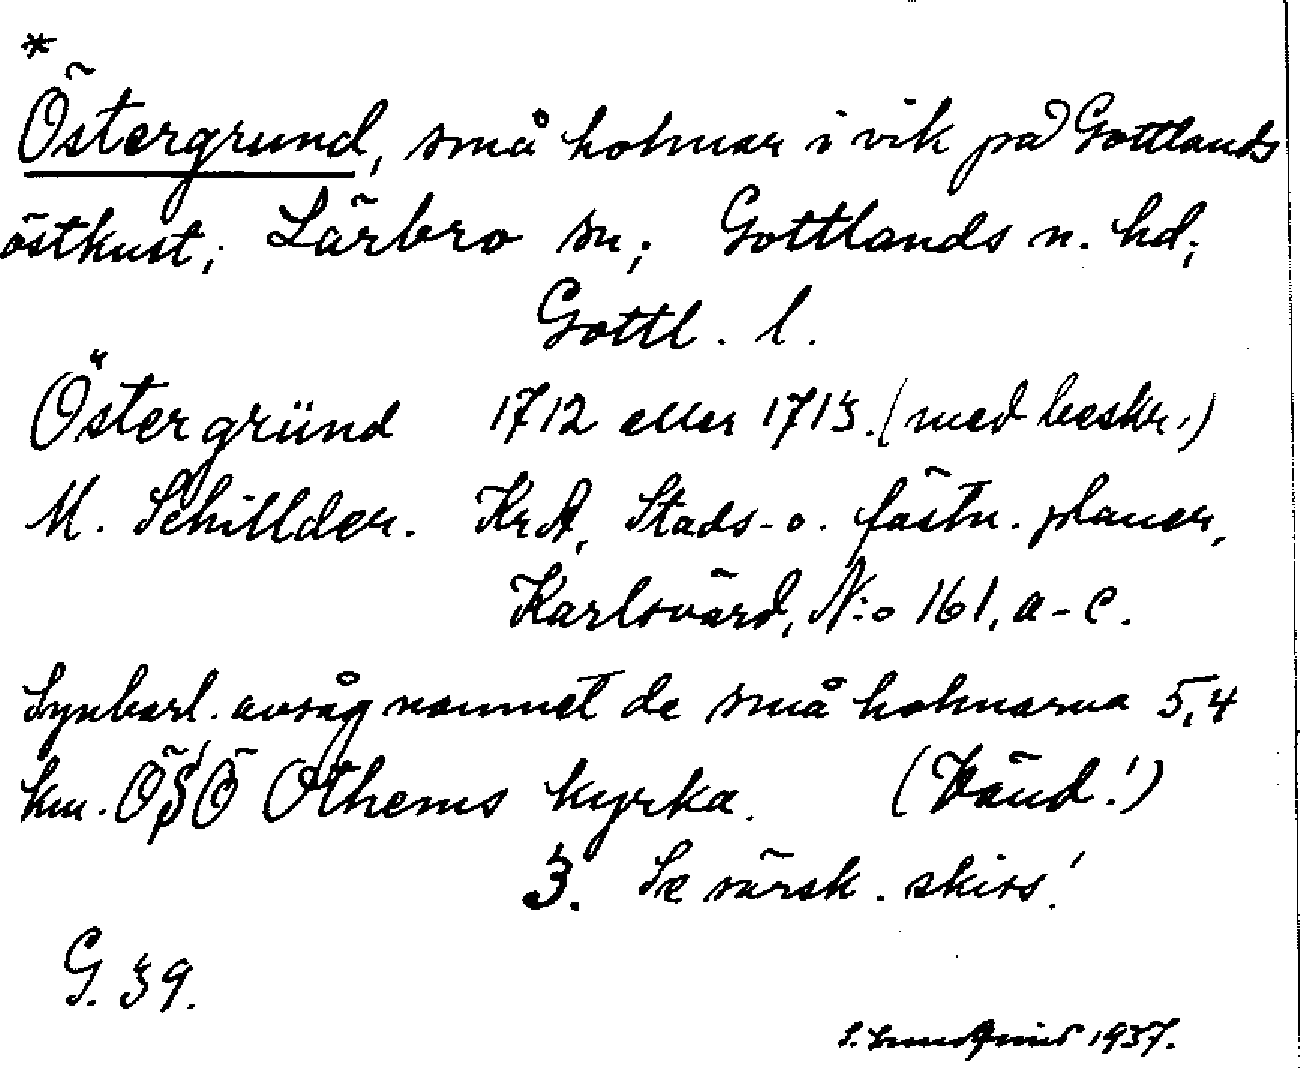 *
Östergrund, små holmar i vik på Gottlands
östkust; Lärbro sn; Gottlands n. hd;
Gottl. l.
Östergründ 1712 eller 1713. (med beskr.)
M. Schillder. KrA, Stads- o. fästn. planer,
Karlsvärd, N:o 161, a-c.
Synbarl. avsåg namnet de små holmarna 5,4
km. ÖSÖ Othems kyrka. (Vänd!)
3. Se särsk. skiss!
G. 39.
S. Lundquist 1937.